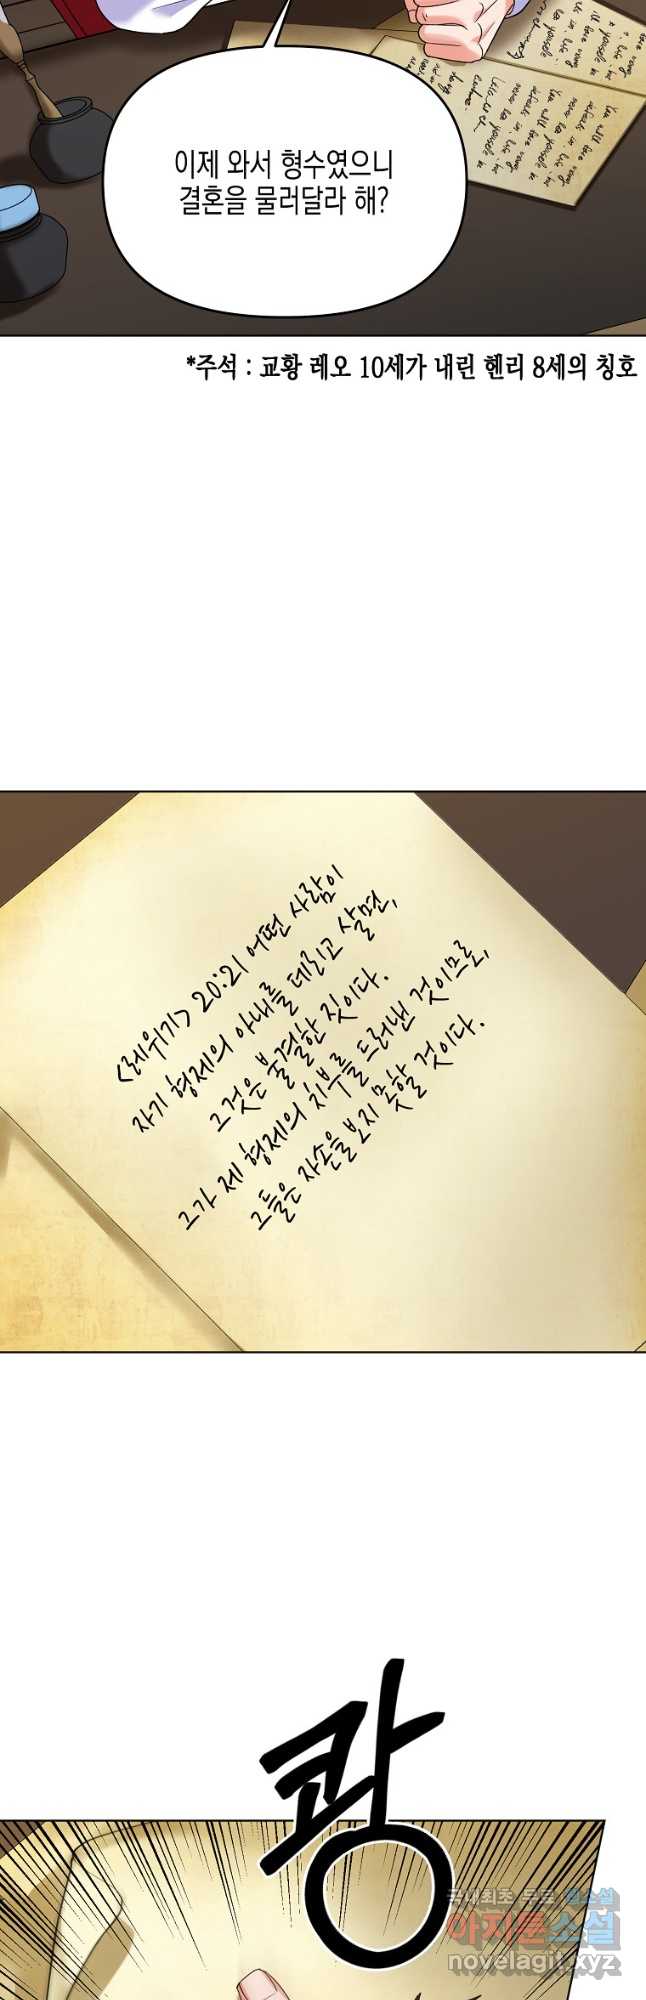 이제 와서 형수였으니
결혼을 물러달라 해?
*주석 : 교황 레오 10세가 내린 헨리 8세의 칭호
<레위기> 20:21 어떤 사람이
자기 형제의 아내를 데리고 살면,
그것은 불결한 짓이다.
그가 제 형제의 치부를 드러낸 것이므로,
그들은 자손을 보지 못할 것이다.
쾅
국내최초 무료 웹소설
아지툰소설
novelagit.xyz